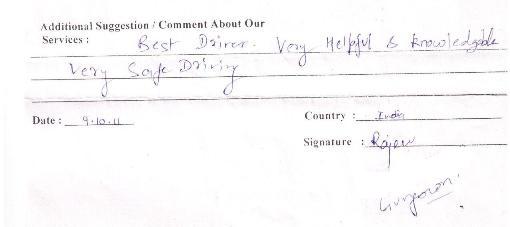 Additional Suggestion / Comment About Our
Services : Best Driver. Very Helpful & knowledgable
Very Safe Driving
Date : 9.10.11
Country : India
Signature : Rajeev
Gurgaon.